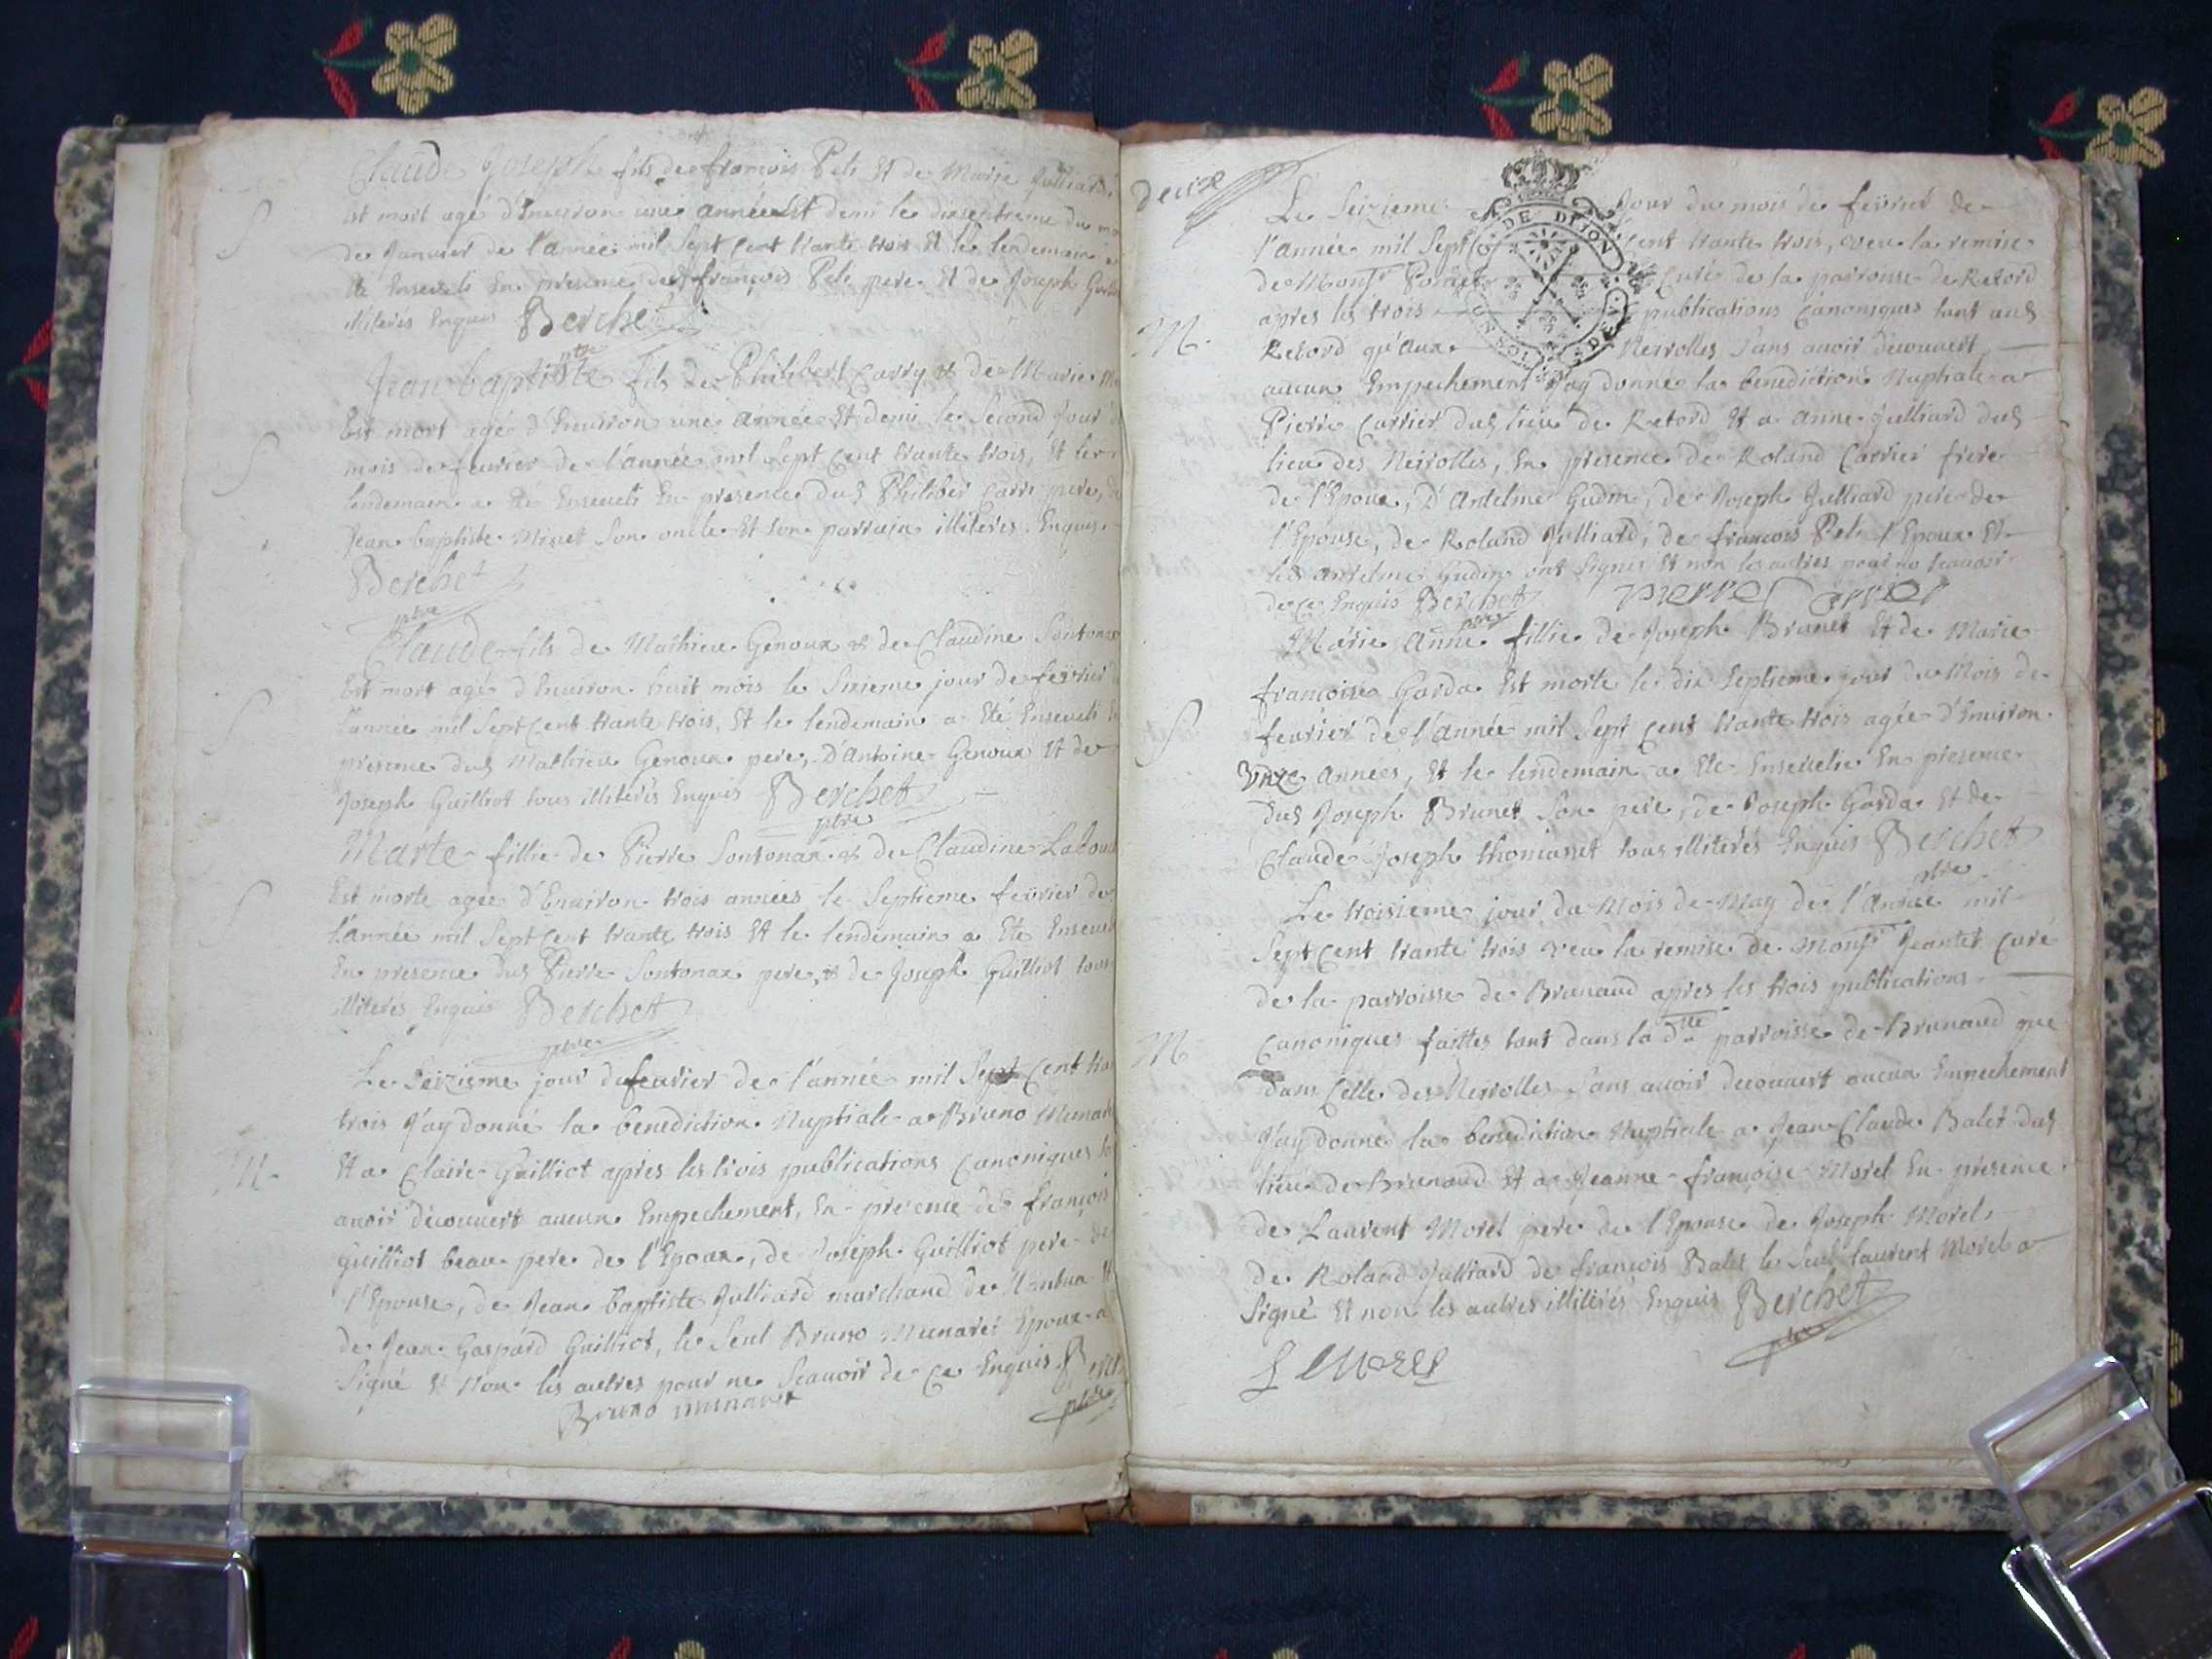 Claude Joseph fils de françois Pele Et de Marie Julliard
Est mort agé d'Enuiron une année Et demi le dixseptieme du
de Januier de l'année mil Sept Cent trante trois Et le lendemain a
Eté Enseueli En presence dud françois Pele pere Et de Joseph
illiterés Enquis Berchet
ptre
Jean baptiste fils de Philibert Carry & de Marie
Est mort agé d'Enuiron une année Et demi le Second Jour
mois de feurier de l'année mil Sept Cent trante trois, Et le
lendemain a Eté Enseueli En presence dud Philiber Carri pere,
Jean baptiste Minet Son oncle Et Son parrain illiterés Enquis
Berchet
ptre
Claude fils de Mathieu Genoux & de Claudine Sontonax
Est mort agé d'Enuiron huit mois le Sixieme jour de feurier
l'année mil Sept Cent trante trois, Et le lendemain a Eté Enseueli
presence dud Mathieu Genoux pere, D'Antoine Genoux Et de
Joseph Guilliot tous illiterés Enquis Berchet
ptre
Marte fillie de Pierre Sontonax & de Claudine
Est morte agée d'Enuiron trois années le Septieme feurier de
l'année mil Sept Cent trante trois Et le lendemain a Eté
En presence dud Pierre Sontonax pere, & de Joseph Guilliot tous
illiterés Enquis Berchet
ptre
Le Seizieme jour du feurier de l'année mil Sept Cent
trois J'ay donné la benediction Nuptiale a Bruno
M.
Et a Claire Guilliot apres les trois publications Canoniques
auoir decouuert aucun Empechement, En presence de françois
Guilliot beau pere de l'Epoux, de Joseph Guilliot pere de
l'Epouse, de Jean baptiste Julliard marchand de Nantua Et
de Jean Gaspard Guilliot, le Seul Bruno Munaret Epoux a
Signé & Non les autres pour ne Scauoir de Ce Enquis
Bruno munaret
ptre
deuze
Le Seizieme Jour du mois de feurier de
DE DIION
l'année mil Sept Cent trante trois, veu la remise
de Monsr Curé de la parroisse de Retord
apres les trois publications Canoniques tant aud
M.
Retord qu'aux Neirolles Sans auoir decouuert
aucun Empechement J'ay donné la benediction Nuptiale a
Pierre Carrier dud lieu de Retord Et a Anne Julliard dud
lieu des Neirolles, En presence de Roland Carrier frere
de l'Epoux, D'Antelme Gudin, de Joseph Julliard pere de
l'Epouse, de Roland Julliard, de françois Pele l'Epoux Et
led Antelme Gudin ont Signés Et non les autres pour ne Scauoir
de Ce Enquis Berchet pierre Carrier
ptre
Marie Anne fillie de Joseph Brunet Et de Marie
françoise Garda Est morte le dix Septieme jour du Mois de
feurier de l'année mil Sept Cent trante trois agée d'Enuiron
Onze Années, Et le lendemain a Eté Enseuelie En presence
dud Joseph Brunet Son pere, de Joseph Garda Et de
Claude Joseph thomasset tous illiterés Enquis Berchet
ptre
Le troisieme jour du Mois de May de l'Année mil
Sept Cent trante trois veu la remise de Monsr Jeantet Curé
de la parroisse de Brunaud apres les trois publications
M
Canoniques faittes tant dans la dtte parroisse de Brunaud que
dans Celle des Neirolles Sans auoir decouuert aucun Empechement
J'ay donné la benediction Nuptiale a Jean Claude Balet dud
lieu de Brunaud Et a Jeanne françoise Morel En presence
de Laurent Morel pere de l'Epouse de Joseph Morel,
de Roland Julliard de françois Balet le Seul laurent Morel a
Signé Et non les autres illiterés Enquis Berchet
ptre
L Morel